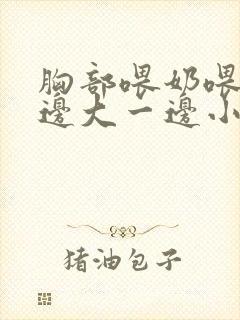 胸部喂奶喂
邊大一邊小
猪油包子